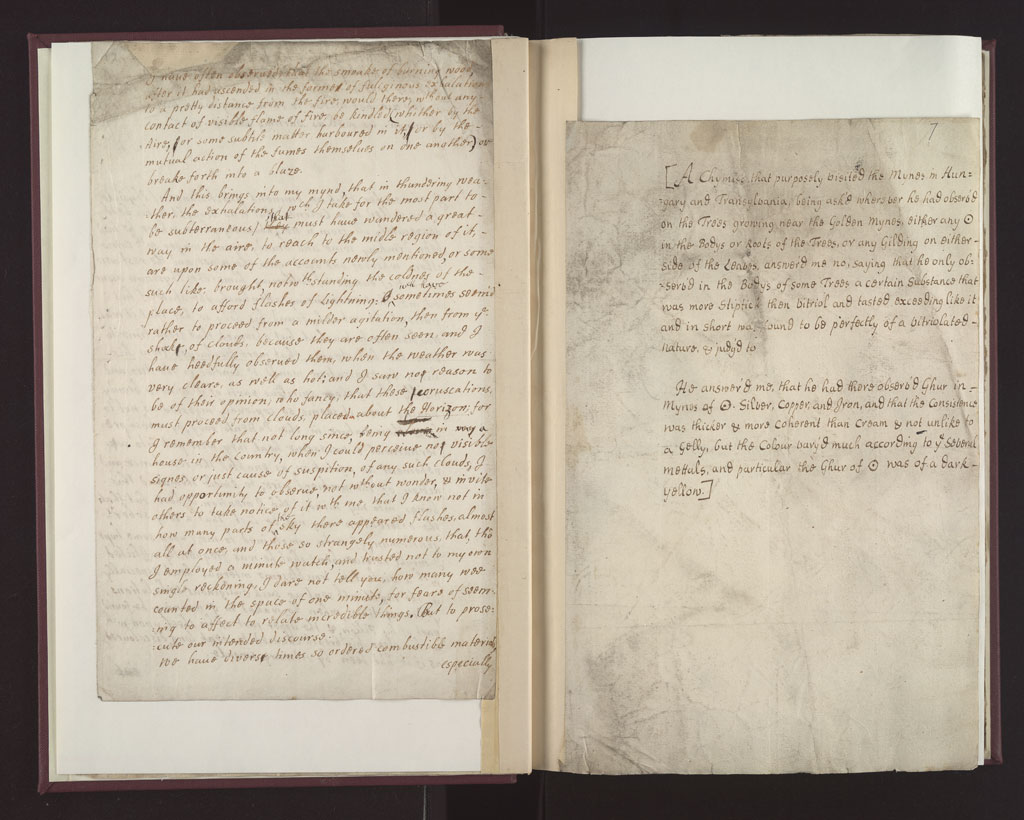 I have often observed that the smoake of burning wood,
after it had ascended in the forme of fuliginous exhalation
to a pretty distance from the fire, would there, wthout any
contact of visible flame of fire, be kindled (whither by the
Aire, or some subtile matter harboured in it, or by the
mutual action of the fumes themselves on one another) or
breake forth into a blaze.
And this brings into my mynd, that in thundering wea-
ther, the exhalation wch I take for the most part to
be subterraneous) must have wandered a great
way in the aire, to reach to the midle region of it,
are upon some of the accounts newly mentioned, or some
such like, brought, notwthstanding the coldnes of the
place, to afford flashes of lightning: sometimes seemd
rather to proceed from a milder agitation, then from ye
shake, of clouds, because they are often seen, and I
have heedfully observed them, when the weather was
very cleare, as well as hot; and I saw no reason to
be of their opinion, who fancy, that these corruscations,
must proceed from clouds, placed about the Horizon; for
I remember that not long since, being in my a
house in the Country, when I could perceive no visible
signes, or just cause of suspition, of any such clouds, I
had opportunity to observe, not wthout wonder, & invite
others to take notice of it wth me, that I know not in
how many parts of the sky there appeared flashes, almost
all at once, and those so strangely numerous, that, tho
I employed a minute watch, and trusted not to my own
single reckoning, I dare not tell you, how many wee
counted in the space of one minute, for feare of seem-
ing to affect to relate incredible things. (But to prose-
cute our intended discourse.
We have divers times so ordered combustible materials,
especially
7
[A Chymist that purposely visited the Mynes in Hun-
gary and Transylvania, being ask'd whether he had observ'd
on the Trees growing near the Golden Mynes, either any ☉
in the Bodys or Roots of the Trees, or any Gilding on either
side of the Leaves, answer'd me no, saying that he only ob-
serv'd in the Bodys of some Trees a certain Substance that
was more Stiptic then Vitriol and tasted exceeding like it
and in short was found to be perfectly of a vitriolated
nature. & judg'd to
He answer'd me, that he had there observ'd Ghur in
Mynes of ☉. Silver, Copper, and Iron, and that the Consistence
was thicker & more Coherent than Cream & not unlike to
a Gelly, but the Colour vary'd much according to ye Several
mettals, and particular the Ghur of ☉ was of a dark
yellow.]